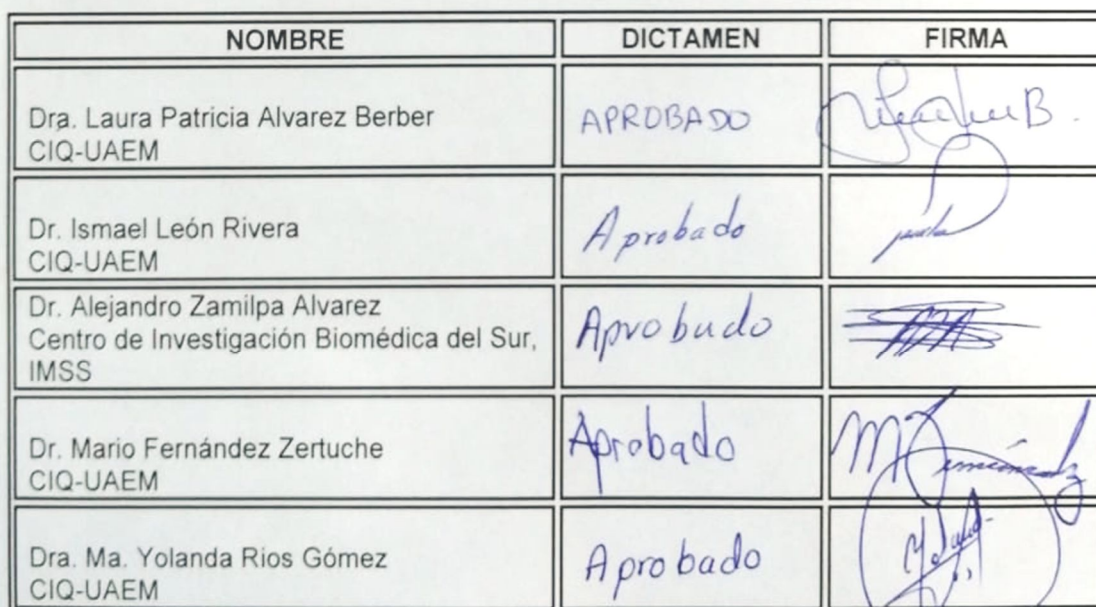 NOMBRE DICTAMEN FIRMA
Dra. Laura Patricia Alvarez Berber
CIQ-UAEM
APROBADO
Dr. Ismael León Rivera
CIQ-UAEM
Aprobado
Dr. Alejandro Zamilpa Alvarez
Centro de Investigación Biomédica del Sur,
IMSS
Aprobado
Dr. Mario Fernández Zertuche
CIQ-UAEM
Aprobado
Dra. Ma. Yolanda Rios Gómez
CIQ-UAEM
Aprobado